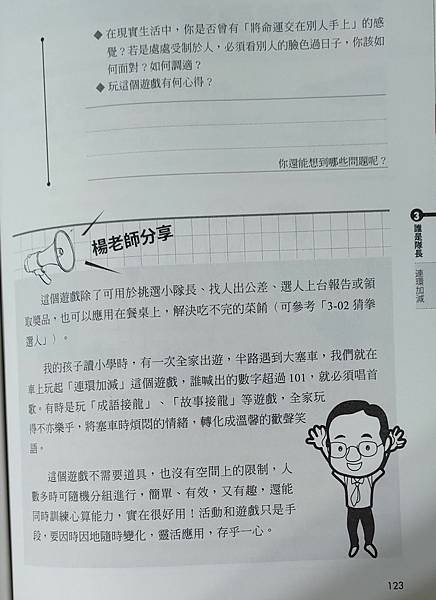 ◆在現實生活中，你是否曾有「將命運交在別人手上」的感
覺？若是處處受制於人，必須看別人的臉色過日子，你該如
何面對？如何調適？
◆玩這個遊戲有何心得？
你還能想到哪些問題呢？
3 誰是隊長 連環加減
楊老師分享
這個遊戲除了可用於挑選小隊長、找人出公差、選人上台報告或領
取獎品，也可以應用在餐桌上，解決吃不完的菜餚（可參考「3-02 猜拳
選人」）。
我的孩子讀小學時，有一次全家出遊，半路遇到大塞車，我們就在
車上玩起「連環加減」這個遊戲，誰喊出的數字超過 101，就必須唱首
歌。有時是玩「成語接龍」、「故事接龍」等遊戲，全家玩
得不亦樂乎，將塞車時煩悶的情緒，轉化成溫馨的歡聲笑
語。
這個遊戲不需要道具，也沒有空間上的限制，人
數多時可隨機分組進行，簡單、有效，又有趣，還能
同時訓練心算能力，實在很好用！活動和遊戲只是手
段，要因時因地隨時變化，靈活應用，存乎一心。
123